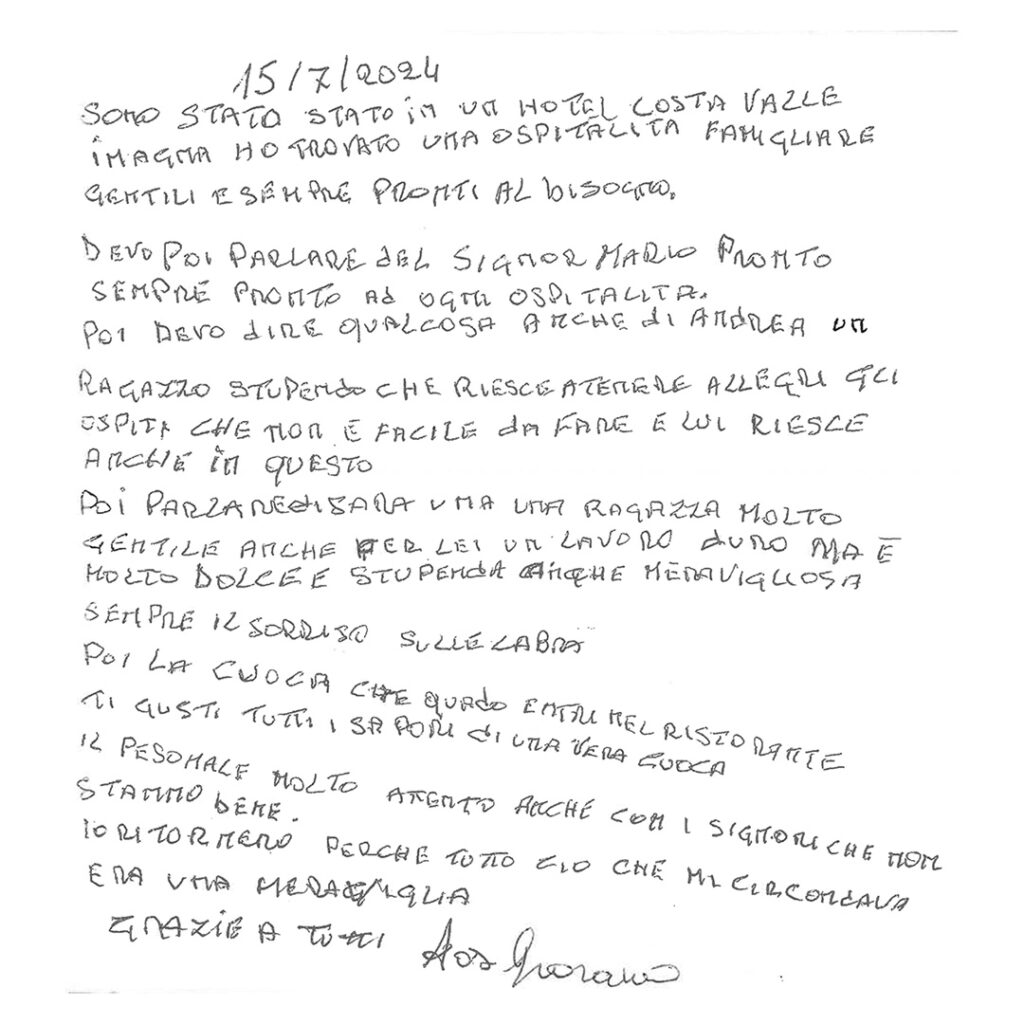 15/7/2024
SONO STATO STATO in UN HOTEL COSTA VALLE
iMAGNA HO TROVATO UNA OSPITALITA FAMIGLIARE
GENTILI E SEMPRE PRONTI AL bISOGNO.
DEVO POI PARLARE dEL SIGNOR MARIO PRONTO
SEMPRE PRONTO Ad OGNI OSPITALITA.
POI DEVO dIRE QUALCOSA ANCHE di ANDREA UN
RAGAZZO STUPENdO CHE RIESCE A TENERE ALLEGRI GLI
OSPITI CHE NON E FACILE dA FARE E LUI RIESCE
ANCHE in QUESTO
POI PARLARE di SARA UNA UNA RAGAZZA MOLTO
GENTILE ANCHE PER LEI UN LAVORO dURO MA È
MOLTO DOLCE E STUPENdA ANCHE MERAVIGLIOSA
SEMPRE IL SORRISO SULLE LABRA
POI LA CUOCA CHE QUADO ENTRI NEL RISTORANTE
TI GUSTI TUTTI I SAPORI di UNA VERA CUOCA
IL PESONALE MOLTO ATENTO ANCHE CON I SIGNORI CHE NON
STANNO bENE.
IO RITORNERO PERCHE TUTTO CIO CHE MI CIRCONdAVA
ERA UNA MERAVIGLIA
GRAZIE A TUTTI